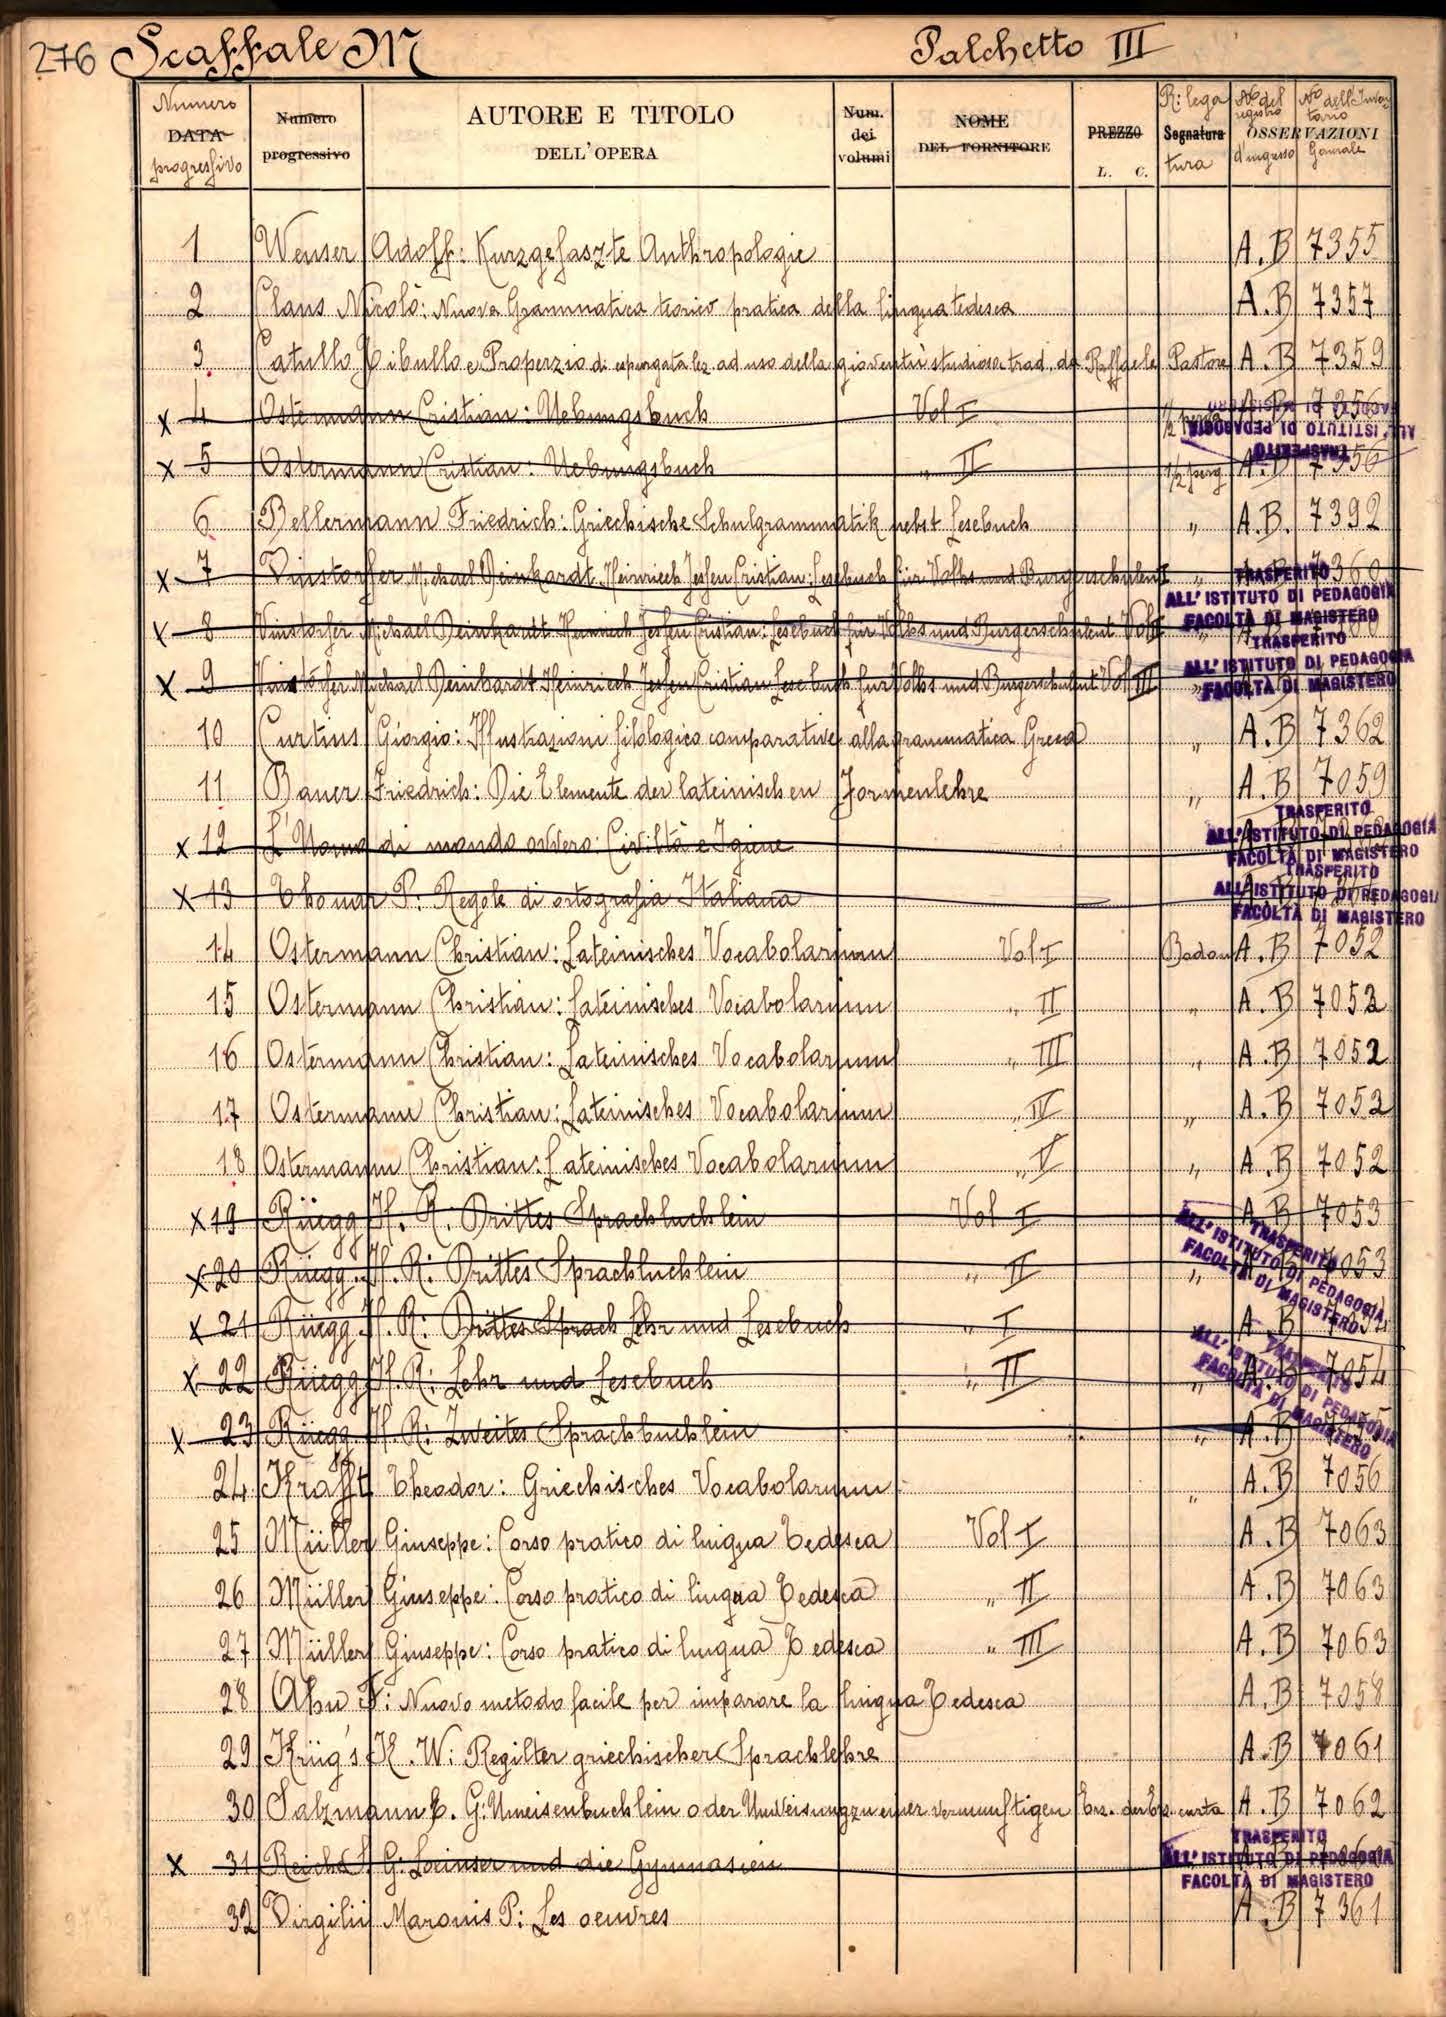 276 Scaffale M Palchetto III
Numero DATA progressivo
Numero progressivo
AUTORE E TITOLO
DELL'OPERA
Num. dei volumi
NOME DEL FORNITORE
PREZZO L. C.
Rilega Segnatura tura
No del registro d'ingresso
OSSERVAZIONI
No dell'Inventario Generale
1 Wenser Adolf: Kurzgefaszte Anthropologie A.B 7355
2 Claus Nicolò: Nuova Grammatica teorico pratica della lingua tedesca A.B 7357
3 Catullo Tibullo e Properzio di espurgata lez. ad uso della gioventù studiosa trad. da Raffaele Pastore A.B 7359
x 4 Ostermann Cristian: Uebungsbuch Vol I 1/2 perg A.B 7356
TRASFERITO
ALL'ISTITUTO DI PEDAGOGIA
FACOLTÀ DI MAGISTERO
x 5 Ostermann Cristian: Uebungsbuch " II 1/2 perg A.B 7356
6 Bellermann Friedrich: Griechische Schulgrammatik nebst Lesebuch " A.B. 7392
x 7 Vinstorfer Michael Deinhardt Heinriech Jessen Cristian: Lesebuch für Volks und Burgerschulen I " 7360
TRASFERITO
ALL'ISTITUTO DI PEDAGOGIA
FACOLTÀ DI MAGISTERO
x 8 Vinstorfer Michael Deinhardt Heinriech Jessen Cristian: Lesebuch fur Volks und Burgerschulent Vol II "
TRASFERITO
ALL'ISTITUTO DI PEDAGOGIA
FACOLTÀ DI MAGISTERO
x 9 Vinstorfer Michael Deinhardt Heinriech Jessen Cristian Lesebuch fur Volks und Burgerschulent Vol III "
10 Curtius Giorgio: Illustrazioni filologico comparative alla grammatica Greca " A.B 7362
11 Bauer Friedrich: Die Elemente der lateinischen Formenlehre " A.B 7059
x 12 L'Uomo di mondo ovvero: Civiltà e Igiene
TRASFERITO
ALL'ISTITUTO DI PEDAGOGIA
FACOLTÀ DI MAGISTERO
x 13 Thomar P: Regole di ortografia Italiana
TRASFERITO
ALL'ISTITUTO DI PEDAGOGIA
FACOLTÀ DI MAGISTERO
14 Ostermann Christian: Lateinisches Vocabolarium Vol I Bodon A.B 7052
15 Ostermann Christian: Lateinisches Vocabolarium " II " A.B 7052
16 Ostermann Christian: Lateinisches Vocabolarium " III " A.B 7052
17 Ostermann Christian: Lateinisches Vocabolarium " IV " A.B 7052
18 Ostermann Christian: Lateinisches Vocabolarium " V " A.B 7052
x 19 Rüegg H. R: Drittes Sprachluchlein Vol I A B 7053
x 20 Rüegg H. R: Drittes Sprachluchlein " II " 7053
TRASFERITO
ALL'ISTITUTO DI PEDAGOGIA
FACOLTÀ DI MAGISTERO
x 21 Rüegg H. R: Drittes Sprach Lehr und Lesebuch " I A B 7054
x 22 Rüegg H. R: Lehr und Lesebuch " II " A.B 7054
TRASFERITO
ALL'ISTITUTO DI PEDAGOGIA
FACOLTÀ DI MAGISTERO
x 23 Rüegg H. R: Zweites Sprachbuchlein " A.B 7055
24 Krafft Theodor: Griechisches Vocabolarium " A.B 7056
25 Müller Giuseppe: Corso pratico di lingua Tedesca Vol I A.B 7063
26 Müller Giuseppe: Corso pratico di lingua Tedesca " II A.B 7063
27 Müller Giuseppe: Corso pratico di lingua Tedesca " III A.B 7063
28 Ahn F: Nuovo metodo facile per imparare la lingua Tedesca A.B 7058
29 Krüg's K. W: Regilter griechischer Sprachlehre A.B 7061
30 Salzmann E. G: Umeisenbuchlein oder Unweisung zu einer vernunftigen Erz. der Erz. carta A.B 7062
x 31 Reiche L. G: Lorinser und die Gymnasien
TRASFERITO
ALL'ISTITUTO DI PEDAGOGIA
FACOLTÀ DI MAGISTERO
32 Virgilii Maronis P: Les oeuvres A.B 7361